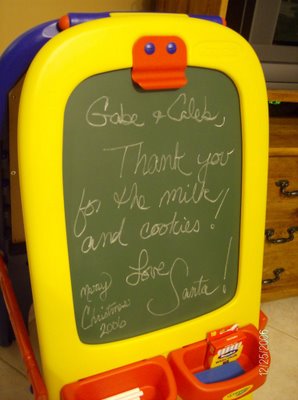 Gabe & Caleb,
Thank you
for the milk
and cookies!
Love
Santa!
Merry
Christmas
2006
12/25/2006